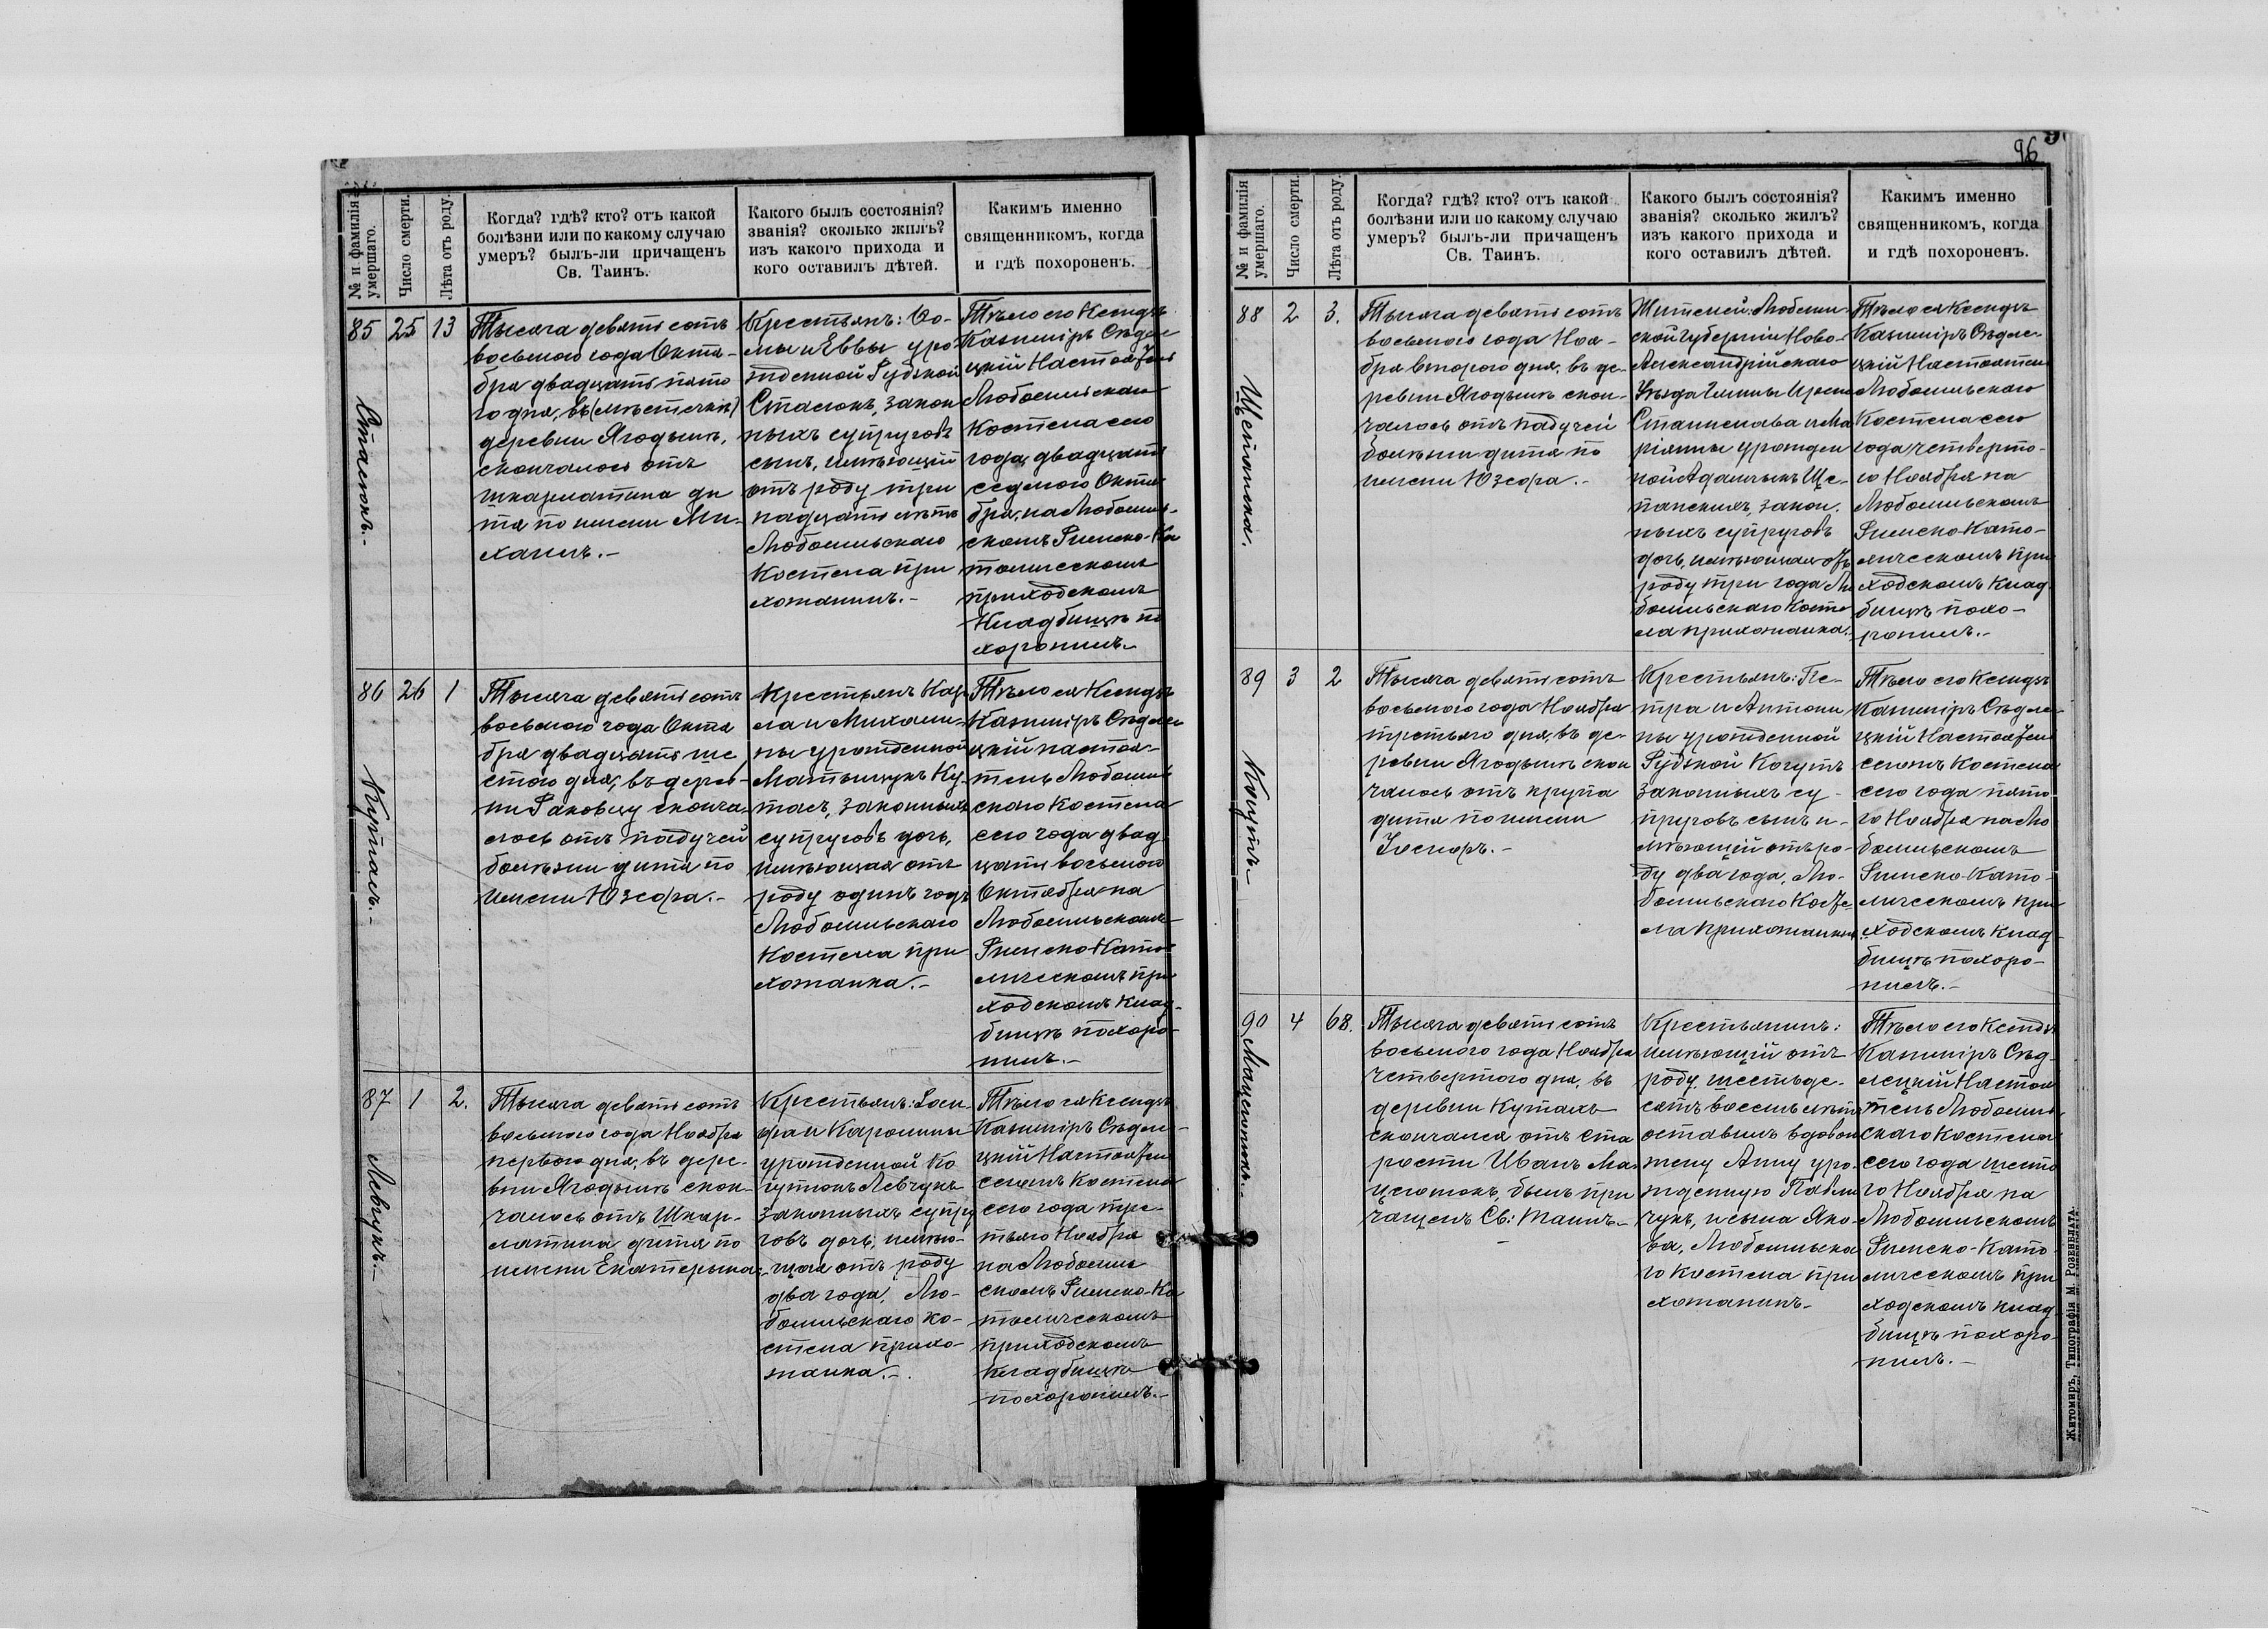 № и фамилія умершаго.
Число смерти.
Лѣта отъ роду.
Когда? гдѣ? кто? отъ какой
болѣзни или по какому случаю
умеръ? былъ-ли причащенъ
Св. Таинъ.
Какого былъ состоянія?
званія? сколько жилъ?
изъ какого прихода и
кого оставилъ дѣтей.
Каким​ъ именно
священникомъ, когда
и гдѣ похороненъ.
85
Стасюкъ.-
25
13
Тысяча девятьсотъ
восьмого года Октя-
бря двадцать пято
го дня, въ (мѣстечкѣ)
деревни Ягодынъ,
скончалось отъ
шкарлатина ди
тя по имени Ми-
хаилъ.-
Крестьянъ: Ѳо-
мы и Еввы уро-
жденной Рудзкой
Стасюкъ, закон
ныхъ супруговъ
сынъ, имѣющій
отъ роду три
надцать лѣтъ
Любомльскаго
Костела при
хожанинъ.-
Тѣло его Ксендзъ
Казиміръ Сѣдле
цкій Настоятель
Любомльскаго
Костела сего
года двадцать
седьмого Октя-
бря, на Любомль-
скомъ Римско-Ка
толическомъ
приходскомъ
Кладбищѣ по
хоронилъ.-
86
Куташъ.-
26
1
Тысяча девятьсотъ
восьмого года Октя
бря двадцать ше
стого дня, въ дерев-
ни Раковцу сконча-
лось отъ падучей
болѣзни дитя по
имени Юзефа.-
Крестьянъ Кар
ла и Михали-
ны урожденной
Матыщукъ Ку-
тасъ, законныхъ
супруговъ дочь,
имѣющая отъ
роду одинъ годъ
Любомльскаго
Костела при
хожанка.-
Тѣло ея Ксендзъ
Казиміръ Сѣдле
цкій настоя-
тель Любомль
скаго Костела
сего года двад
цать восьмого
Октября на
Любомльскомъ
Римско-Като-
лическомъ при
ходскомъ Клад-
бищѣ похоро-
нилъ.-
87
Левчукъ.-
1
2.
Тысяча девятьсотъ
восьмого года Ноября
перваго дня, въ дере-
вни Ягодынъ скон-
чалось отъ Шкар-
латина дитя по
имени Екатерына.-
Крестьянъ: Іоси-
фа и Каролины
урожденной Ко
гутюкъ Левчукъ
законныхъ супру
говъ дочь, имѣю-
щая отъ роду
два года, Лю-
бомльскаго Ко-
стела прихо-
жанка.-
Тѣло ея Ксендзъ
Казиміръ Сѣдле-
цкій Настоятель
сегожъ Костела
сего года тре-
тьяго Ноября
на Любомль
скомъ Римско-Ка
толическомъ
приходскомъ
Кладбищѣ
похоронилъ.-
96
№ и фамилія умершаго.
Число смерти.
Лѣта отъ роду.
Когда? гдѣ? кто? отъ какой
болѣзни или по какому случаю
умеръ? былъ-ли причащенъ
Св. Таинъ.
Какого былъ состоянія?
званія? сколько жилъ?
изъ какого прихода и
кого оставилъ дѣтей.
Какимъ именно
священникомъ, когда
и гдѣ похороненъ.
88
Щепанска.
2
3.
Тысяча девятьсотъ
восьмого года Ноя-
бря второго дня, въ де-
ревни Ягодынъ скон-
чалось отъ падучей
болѣзни дитя по
имени Юзефа.-
Жителей: Люблин-
ской Губерніи Ново-
Александрійскаго
Уѣзда Гмины
Станислава и Ма
ріянны урожден
ной Адамчыкъ Ще-
панскихъ, закон.
ныхъ супруговъ
дочь, имѣющая отъ
роду три года Лю
бомльскаго Косте
ла прихожанка.-
Тѣло ея Ксендзъ
Казиміръ Сѣдле-
цкій Настоятель
Любомльскаго
Костела сего
года четверто-
го Ноября на
Любомльскомъ
Римско-Като-
лическомъ при
ходскомъ Клад
бищѣ похо-
ронилъ.-
89
Когутъ.-
3
2
Тысяча девятьсотъ
восьмого года Ноября
третьяго дня, въ де-
ревни Ягодынъ скон
чалось отъ крупа
дитя по имени
Іосифъ.-
Крестьянъ: Пе-
тра и Антони
ны урожденной
Рудзкой Когутъ
законныхъ су-
пруговъ сынъ и-
мѣющій отъ ро-
ду два года, Лю-
бомльскаго Косте-
ла прихожанинъ.
Тѣло его Ксендзъ
Казиміръ Сѣдле-
цкій Настоятель
сегожъ Костела
сего года пято
го Ноября на Лю
бомльскомъ
Римско-Като-
лическомъ при
ходскомъ Клад-
бищѣ похоро-
нилъ.-
90
Мацеюкъ.-
4
68.
Тысяча девятьсотъ
восьмого года Ноября
четвертого дня, въ
деревни Кутахъ
скончался отъ ста
рости Иванъ Ма-
цеюкъ, былъ при
чащенъ Св: Таинъ.-
Крестьянинъ:
имѣющій отъ
роду шестьде-
сятъ восемь лѣтъ
оставилъ вдовою
жену Анну уро-
жденную Павли
чукъ, и сына Яко-
ва, Любомльска
го Костела при
хожанинъ.-
Тѣло его Ксендзъ
Казиміръ Сѣд-
лецкій Настоя
тель Любомль
скаго Костела
сего года шесто
го Ноября на
Любомльскомъ
Римско-Като
лическомъ при
ходскомъ клад
бищѣ похоро-
нилъ.-
Житомиръ, Типографія М. Розенблата.